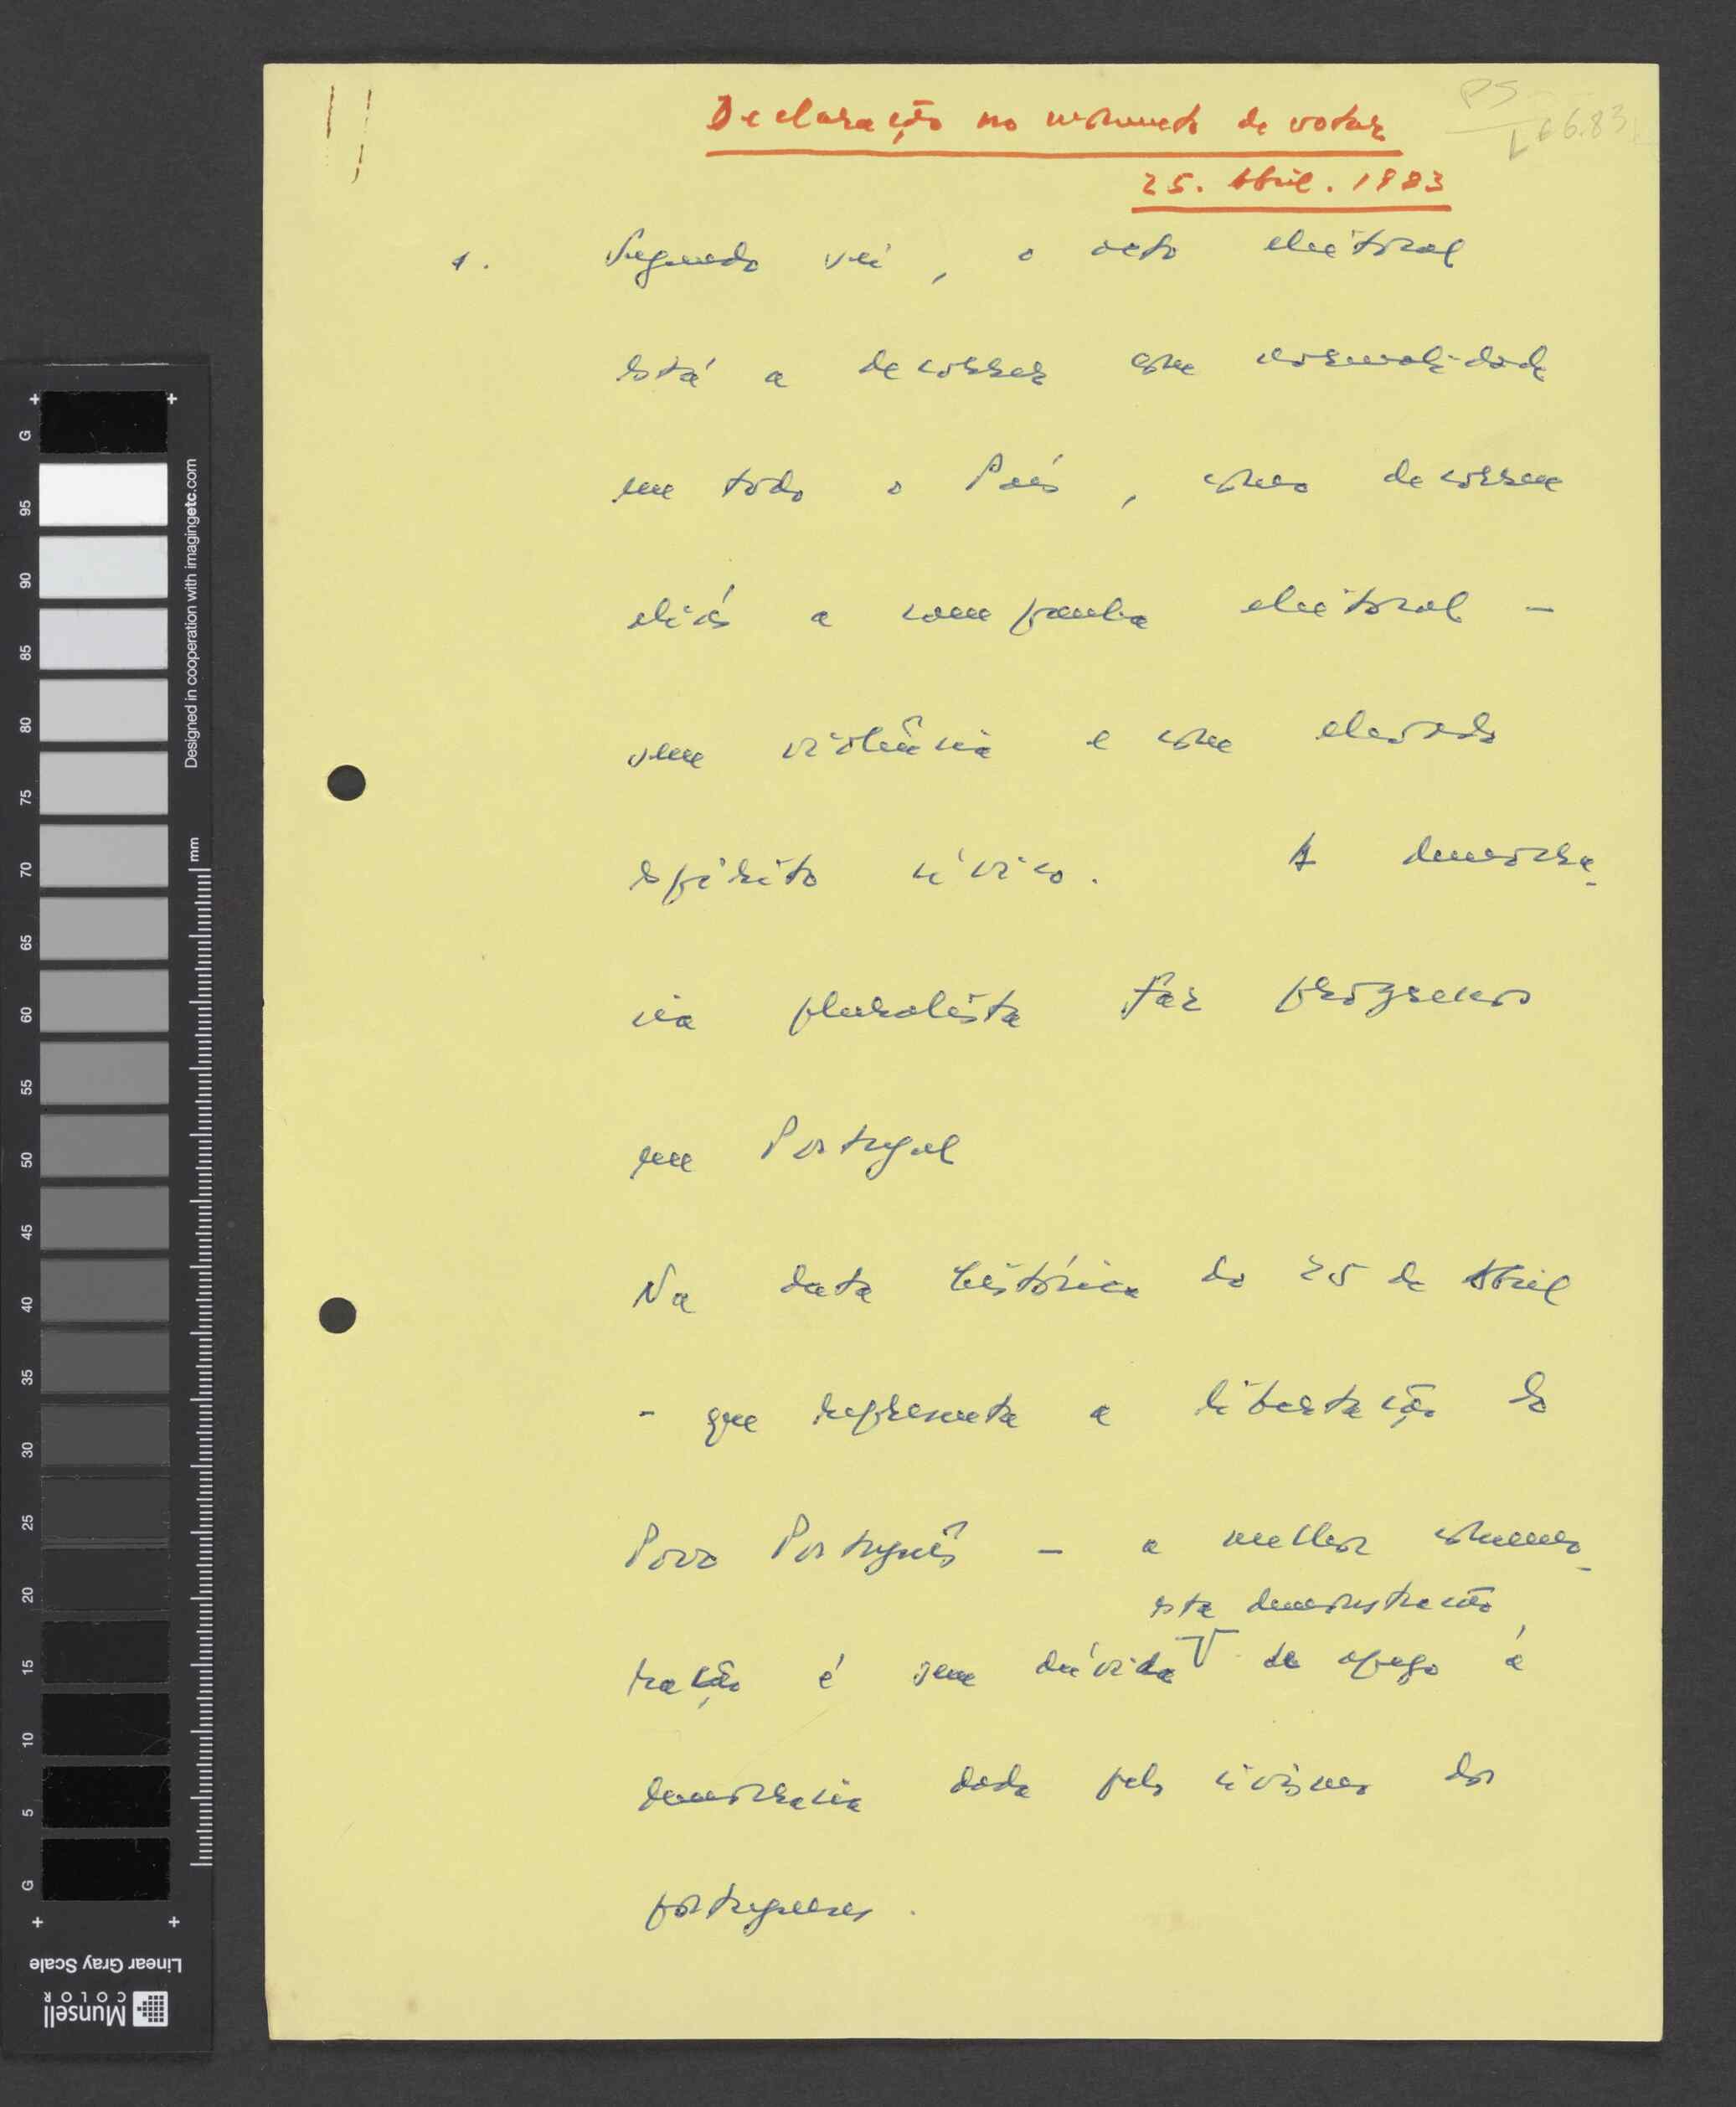 Declaração no momento de votar
25. Abril. 1983
PS
1. Segundo sei, o acto eleitoral
está a decorrer com normalidade
em todo o País, como decorreu
aliás a campanha eleitoral -
sem violência e com elevado
espírito cívico. A democra-
cia pluralista faz progressos
em Portugal
Na data histórica do 25 de Abril
- que representa a libertação do
Povo Português - a melhor comemo-
esta demonstração
ração é sem dúvida de apego à
democracia dada pelo civismo dos
portugueses.
G
95
90
85
80
75
70
65
60
55
50
45
40
35
30
25
20
15
10
5
G
mm
Designed in cooperation with imagingetc.com
Linear Gray Scale
Munsell
COLOR